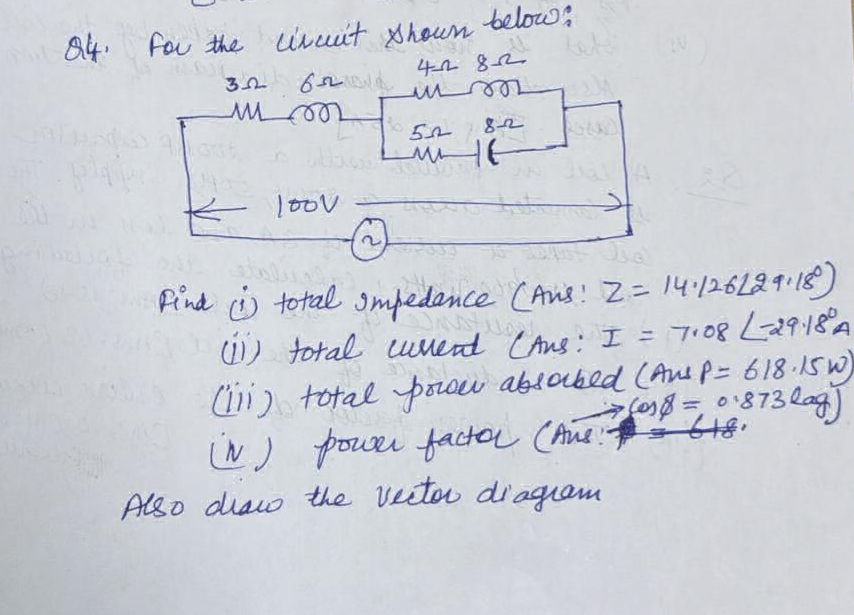 Q4. For the circuit shown below:
4Ω 8Ω
3Ω 6Ω
5Ω 8Ω
100V
~
Find (i) total impedance (Ans: Z = 14.126∠29.18°)
(ii) total current (Ans: I = 7.08 ∠-29.18° A
(iii) total power absorbed (Ans P = 618.15 W)
→ Cosφ = 0.873 lag)
(iv) power factor (Ans: = 618.
Also draw the vector diagram